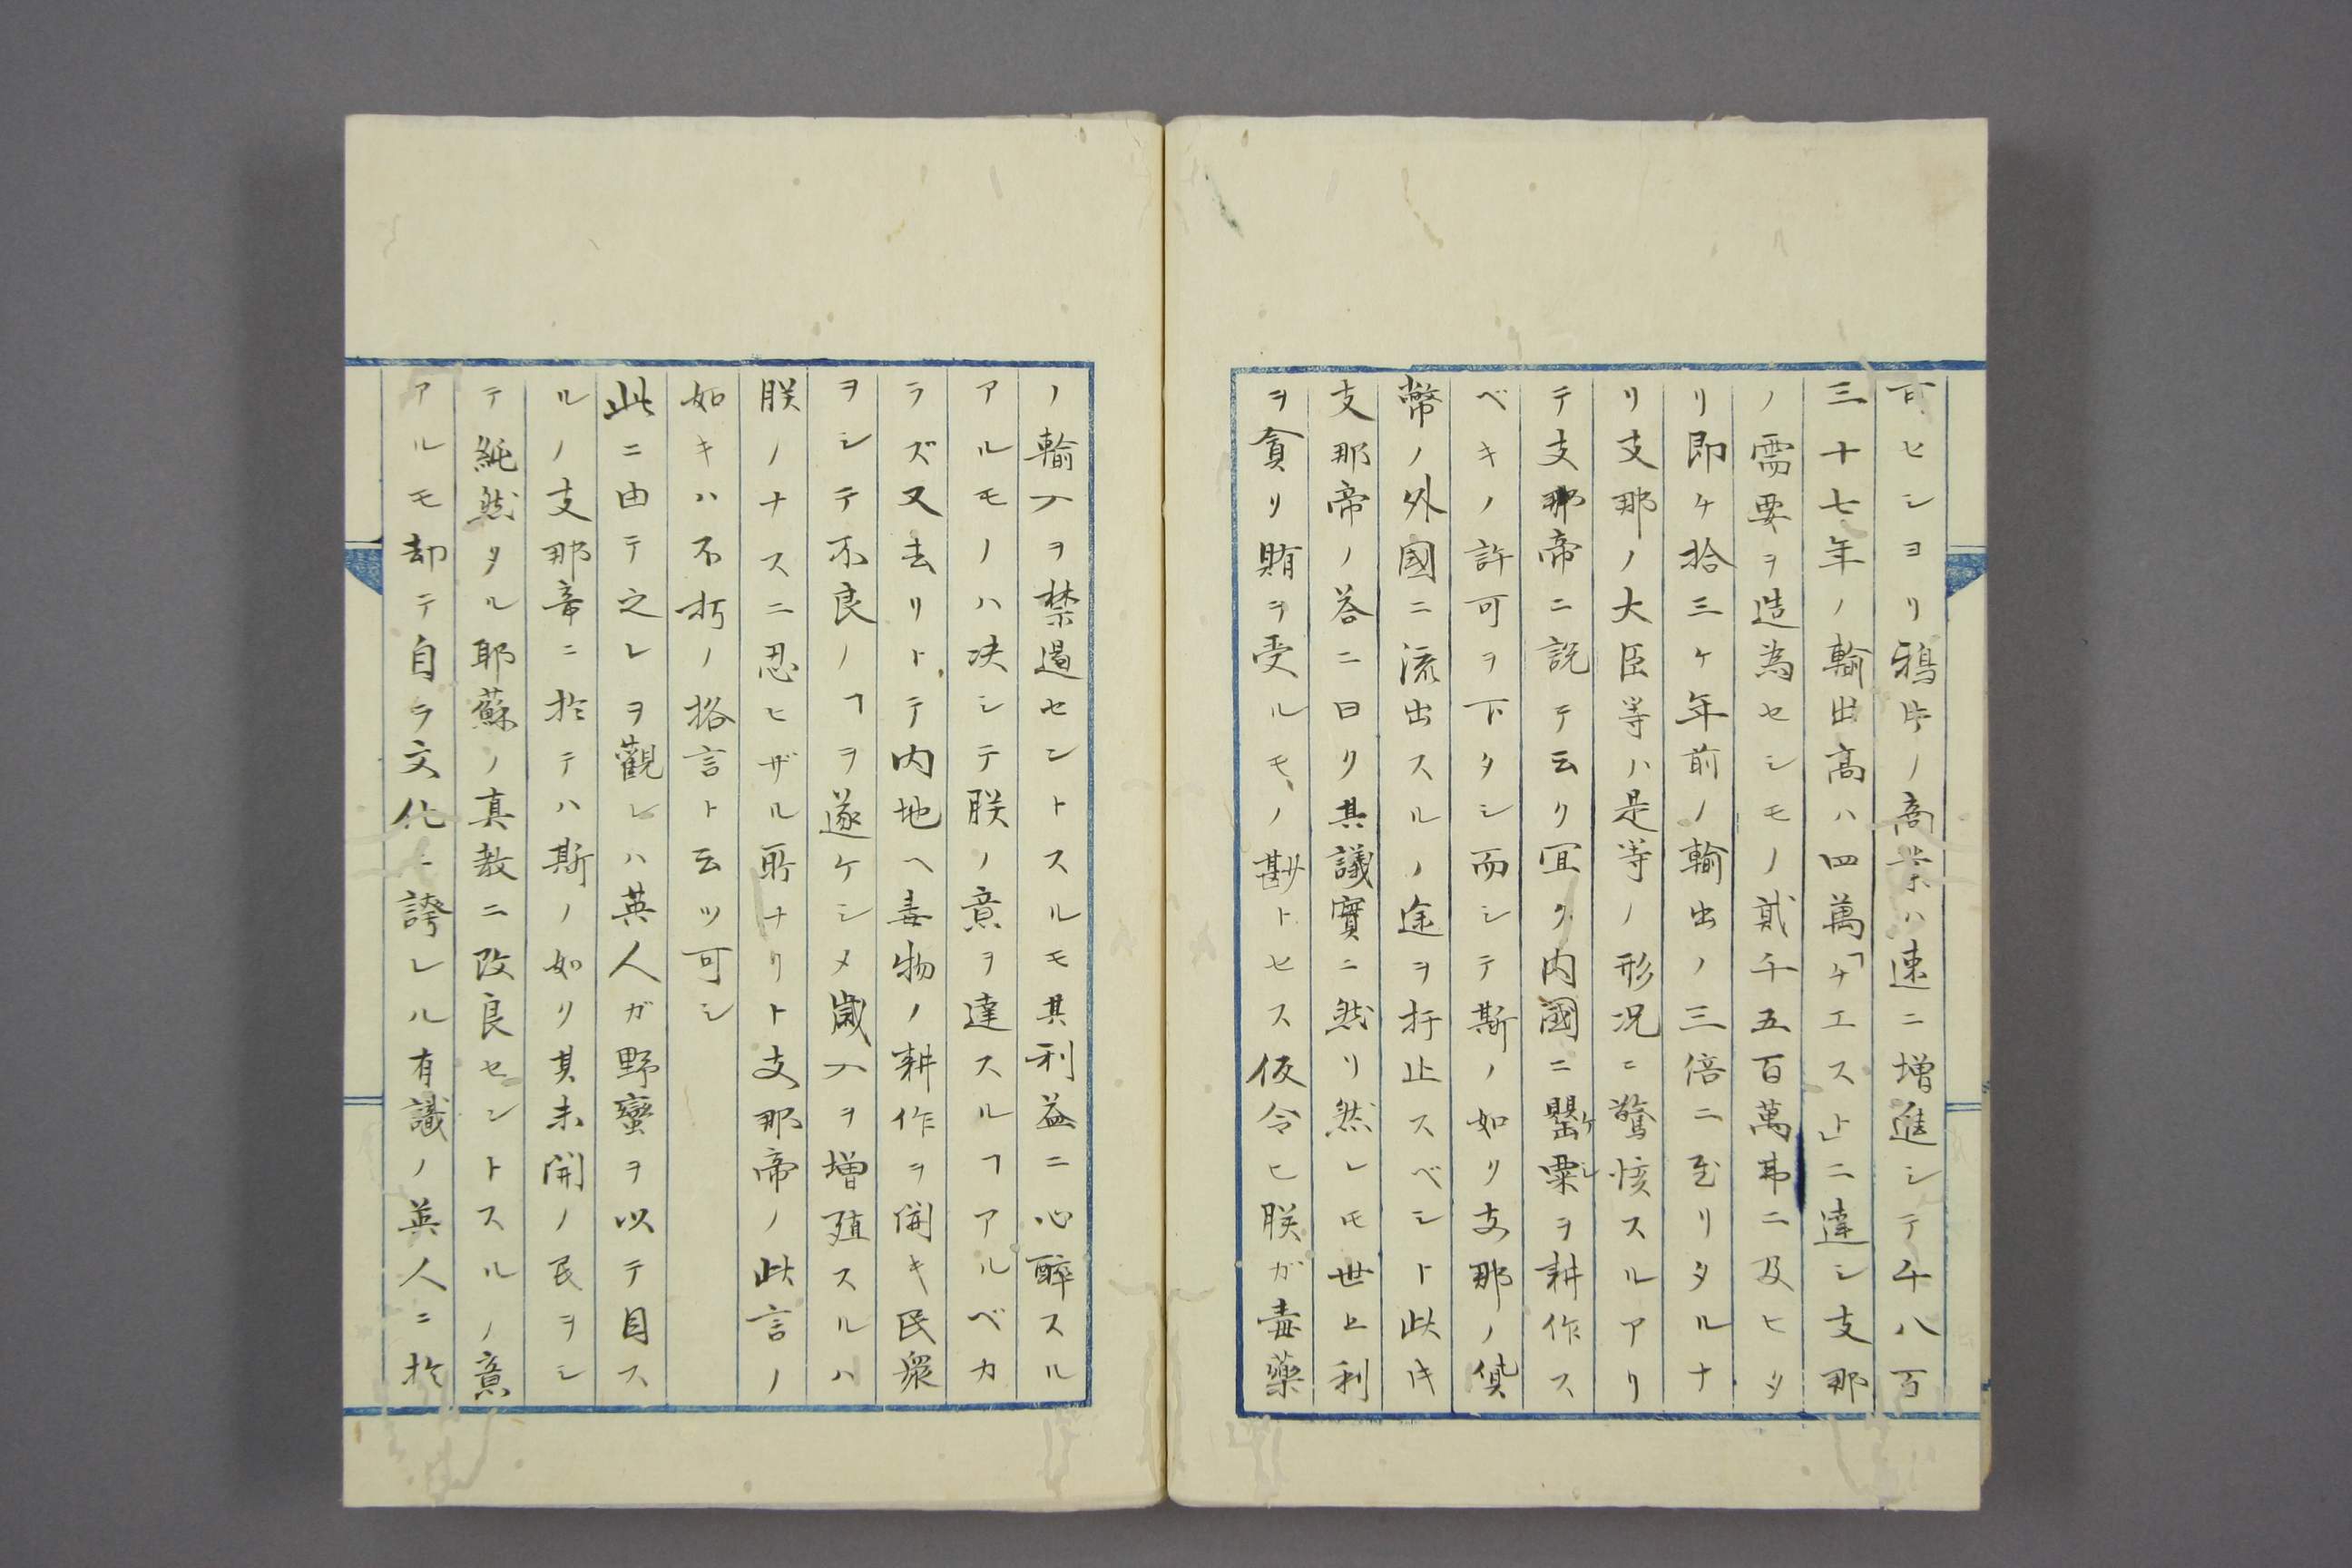 可セシヨリ鴉片ノ商業ハ速ニ増進シテ千八百
三十七年ノ輸出高ハ四萬「チエスト」ニ達シ支那
ノ需要ヲ造為セシモノ貳千五百萬弗ニ及ヒタ
リ即チ拾三ケ年前ノ輸出ノ三倍ニ至リタルナ
リ支那ノ大臣等ハ是等ノ形況ニ驚愕スルアリ
テ支那帝ニ説テ云ク宜ク内國ニ罌粟ケシヲ耕作ス
ベキノ許可ヲ下タシ而シテ斯ノ如リ支那ノ貨
幣ノ外國ニ流出スルノ途ヲ扞止スベシト此時
支那帝ノ答ニ曰ク其議實ニ然リ然レ𪜈世上利
ヲ貪リ賄ヲ受ルモノ尠トセス仮令ヒ朕ガ毒藥
ノ輸入ヲ禁遏セントスルモ其利益ニ心酔スル
アルモノハ决シテ朕ノ意ヲ達スルヿアルベカ
ラズ又去リトテ内地ヘ毒物ノ耕作ヲ開キ民衆
ヲシテ不良ノヿヲ遂ケシメ歳入ヲ増殖スルハ
朕ノナスニ忍ヒザル所ナリト支那帝ノ此言ノ
如キハ不朽ノ格言ト云ツ可シ
此ニ由テ之レヲ觀レハ英人ガ野蠻ヲ以テ目ス
ルノ支那帝ニ於テハ斯ノ如リ其未開ノ民ヲシ
テ純然タル耶蘇ノ真教ニ改良セントスルノ意
アルモ却テ自ラ文化ニ誇レル有識ノ英人ニ於